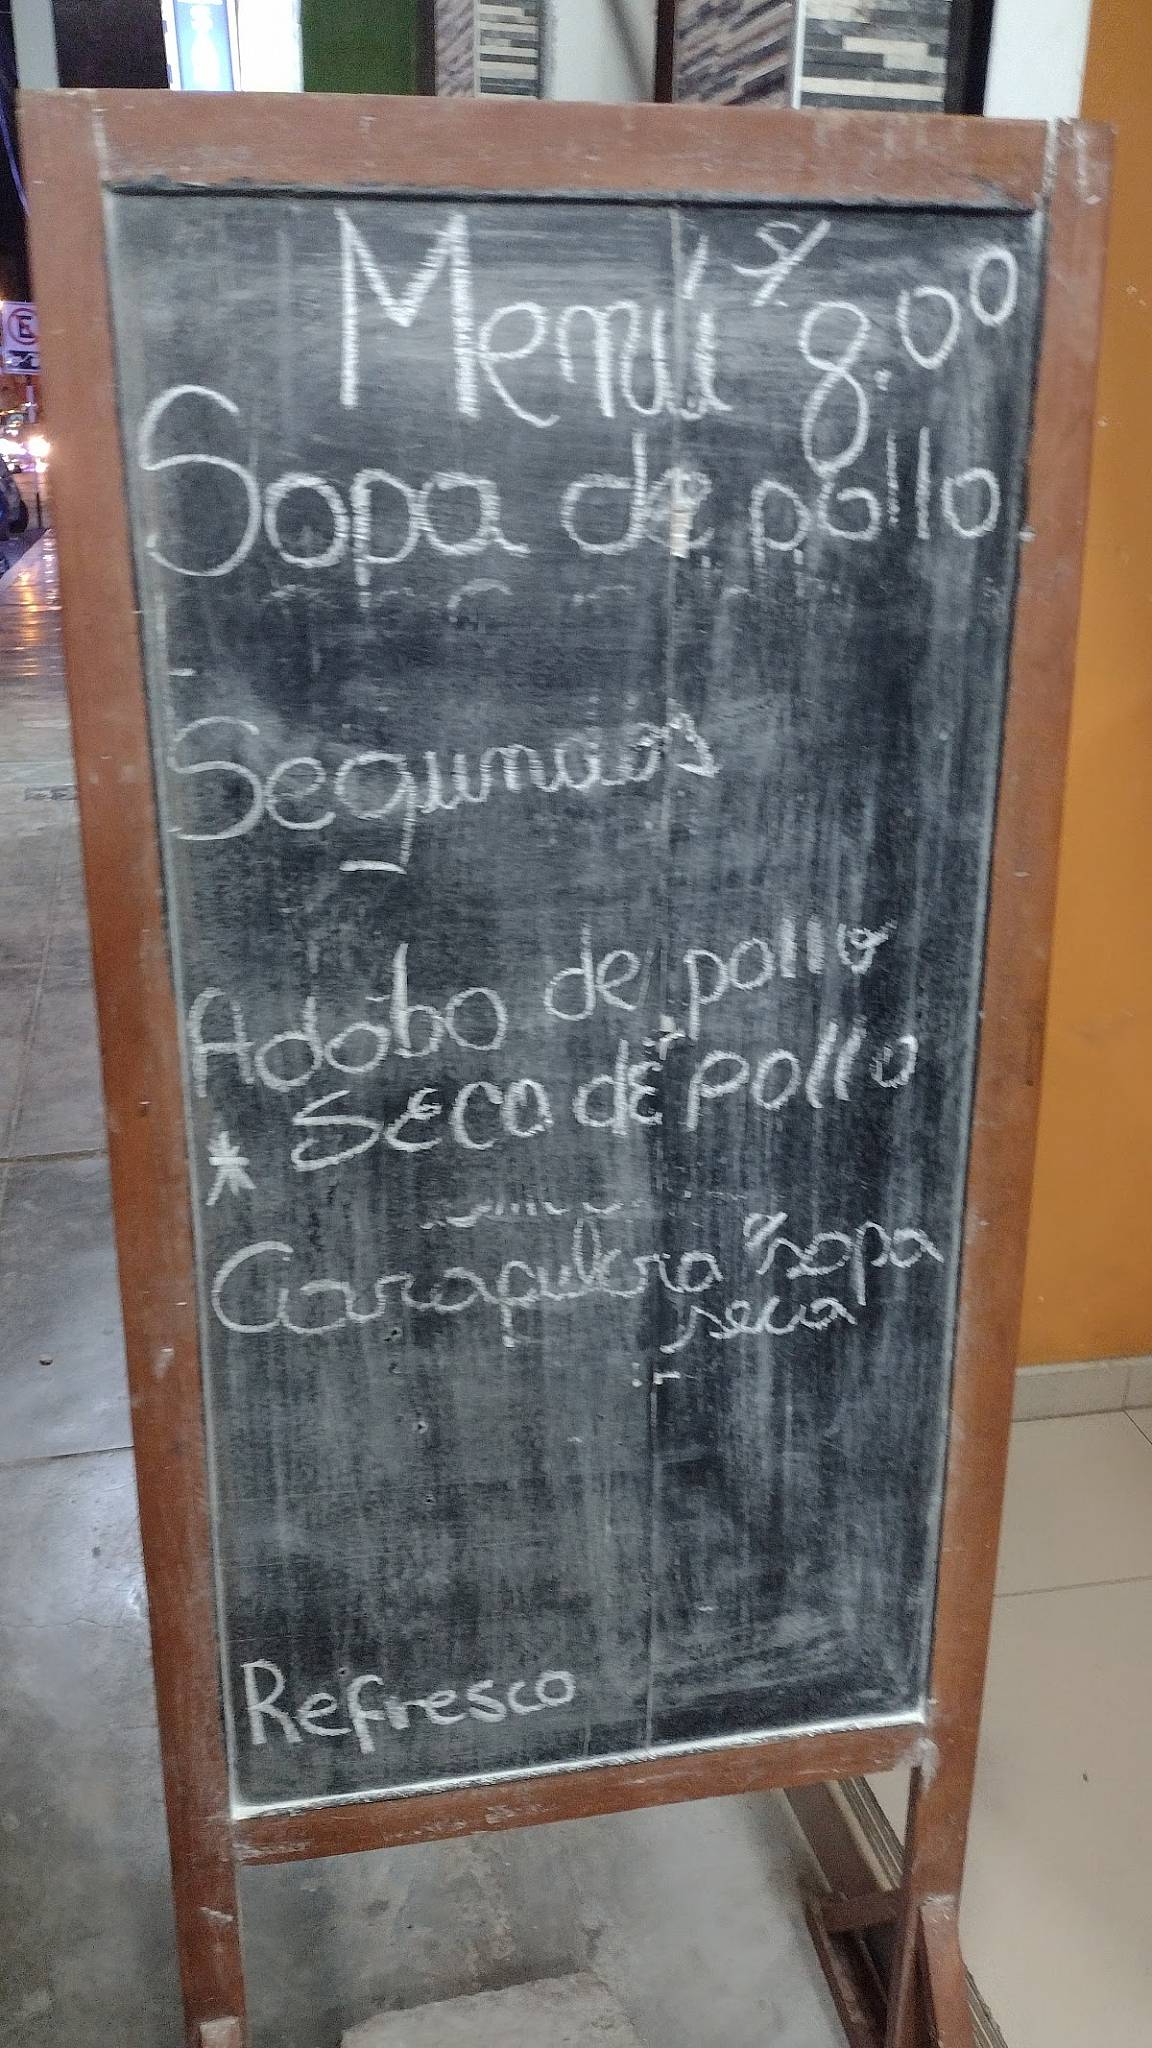 Menú S/ 8.00
Sopa de pollo
Segundos
Adobo de pollo
* Seco de pollo
Carapulcra % sopa
seca
Refresco
E